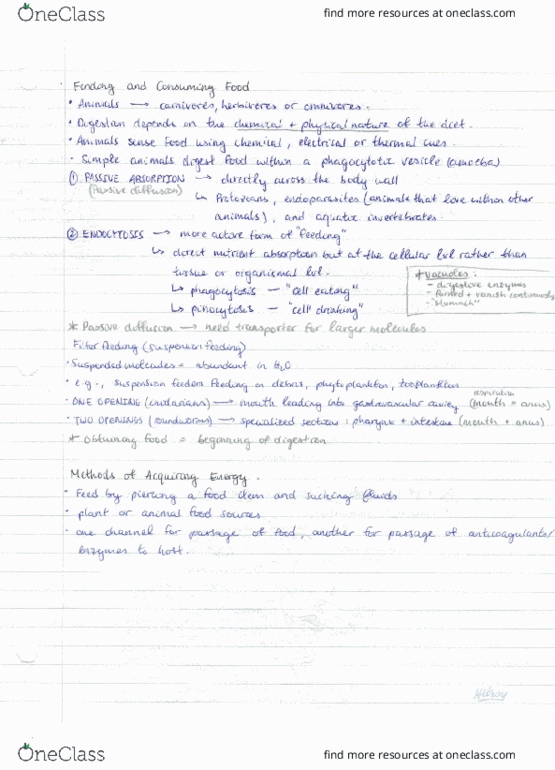 OneClass
find more resources at oneclass.com
Finding and Consuming Food
• Animals → carnivores, herbivores or omnivores.
• Digestion depends on the chemical + physical nature of the diet.
• Animals sense food using chemical, electrical or thermal cues.
• Simple animals digest food within a phagocytotic vesicle (amoeba)
① PASSIVE ABSORPTION → directly across the body wall
(Passive diffusion)
↳ Protozoans, endoparasites (animals that live within other
animals), and aquatic invertebrates
② ENDOCYTOSIS → more active form of "feeding"
↳ direct nutrient absorption but at the cellular lvl rather than
tissue or organismal lvl.
↳ phagocytosis — "cell eating"
↳ pinocytosis — "cell drinking"
* vacuoles:
- digestive enzymes
- formed + vanish continuously
- "stomach"
* Passive diffusion → need transporter for larger molecules
Filter feeding (suspension feeding)
• Suspended molecules = abundant in H₂O
• e.g., suspension feeders feeding on debris, phytoplankton, zooplankton
• ONE OPENING (cnidarians) → mouth leading into gastrovascular cavity (mouth = anus)
• TWO OPENINGS (roundworms) → specialized sections: pharynx + intestine (mouth + anus)
* Obtaining food = beginning of digestion
Methods of Acquiring Energy.
• Feed by piercing a food item and sucking fluids
• plant or animal food sources
• one channel for passage of food, another for passage of anticoagulants/
enzymes to host.
OneClass
find more resources at oneclass.com